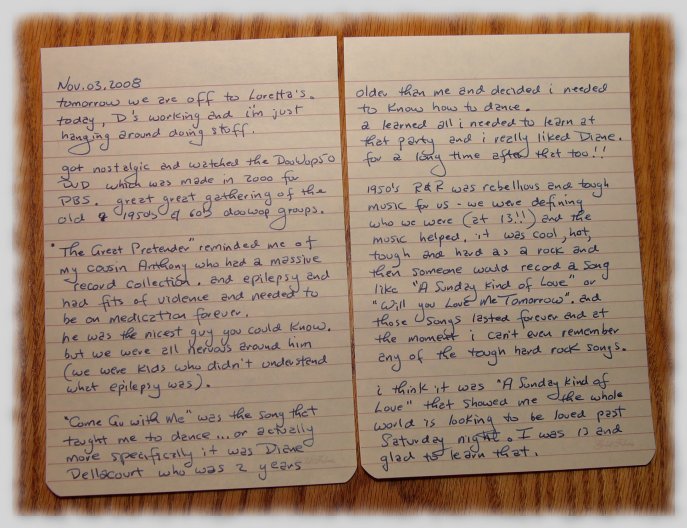 Nov.03.2008
tomorrow we are off to Loretta's.
today, D's working and i'm just
hanging around doing stuff.
got nostalgic and watched the DooWop50
DVD which was made in 2000 for
PBS. great great gathering of the
old 1950's & 60's doowop groups.
"The Great Pretender" reminded me of
my cousin Anthony who had a massive
record collection. and epilepsy and
had fits of violence and needed to
be on medication forever.
he was the nicest guy you could know.
but we were all nervous around him
(we were kids who didn't understand
what epilepsy was).
"Come Go with Me" was the song that
taught me to dance... or actually
more specifically it was Diane
Dellacourt who was 2 years
older than me and decided i needed
to know how to dance.
a learned all i needed to learn at
that party and i really liked Diane.
for a long time after that too!!
1950's R&R was rebellious and tough
music for us - we were defining
who we were (at 13!!) and the
music helped. it was cool, hot,
tough and hard as a rock and
then someone would record a song
like "A Sunday Kind of Love" or
"Will you Love Me Tomorrow". and
those songs lasted forever and at
the moment i can't even remember
any of the tough hard rock songs.
i think it was "A Sunday Kind of
Love" that showed me the whole
world is looking to be loved past
Saturday night. I was 13 and
glad to learn that.